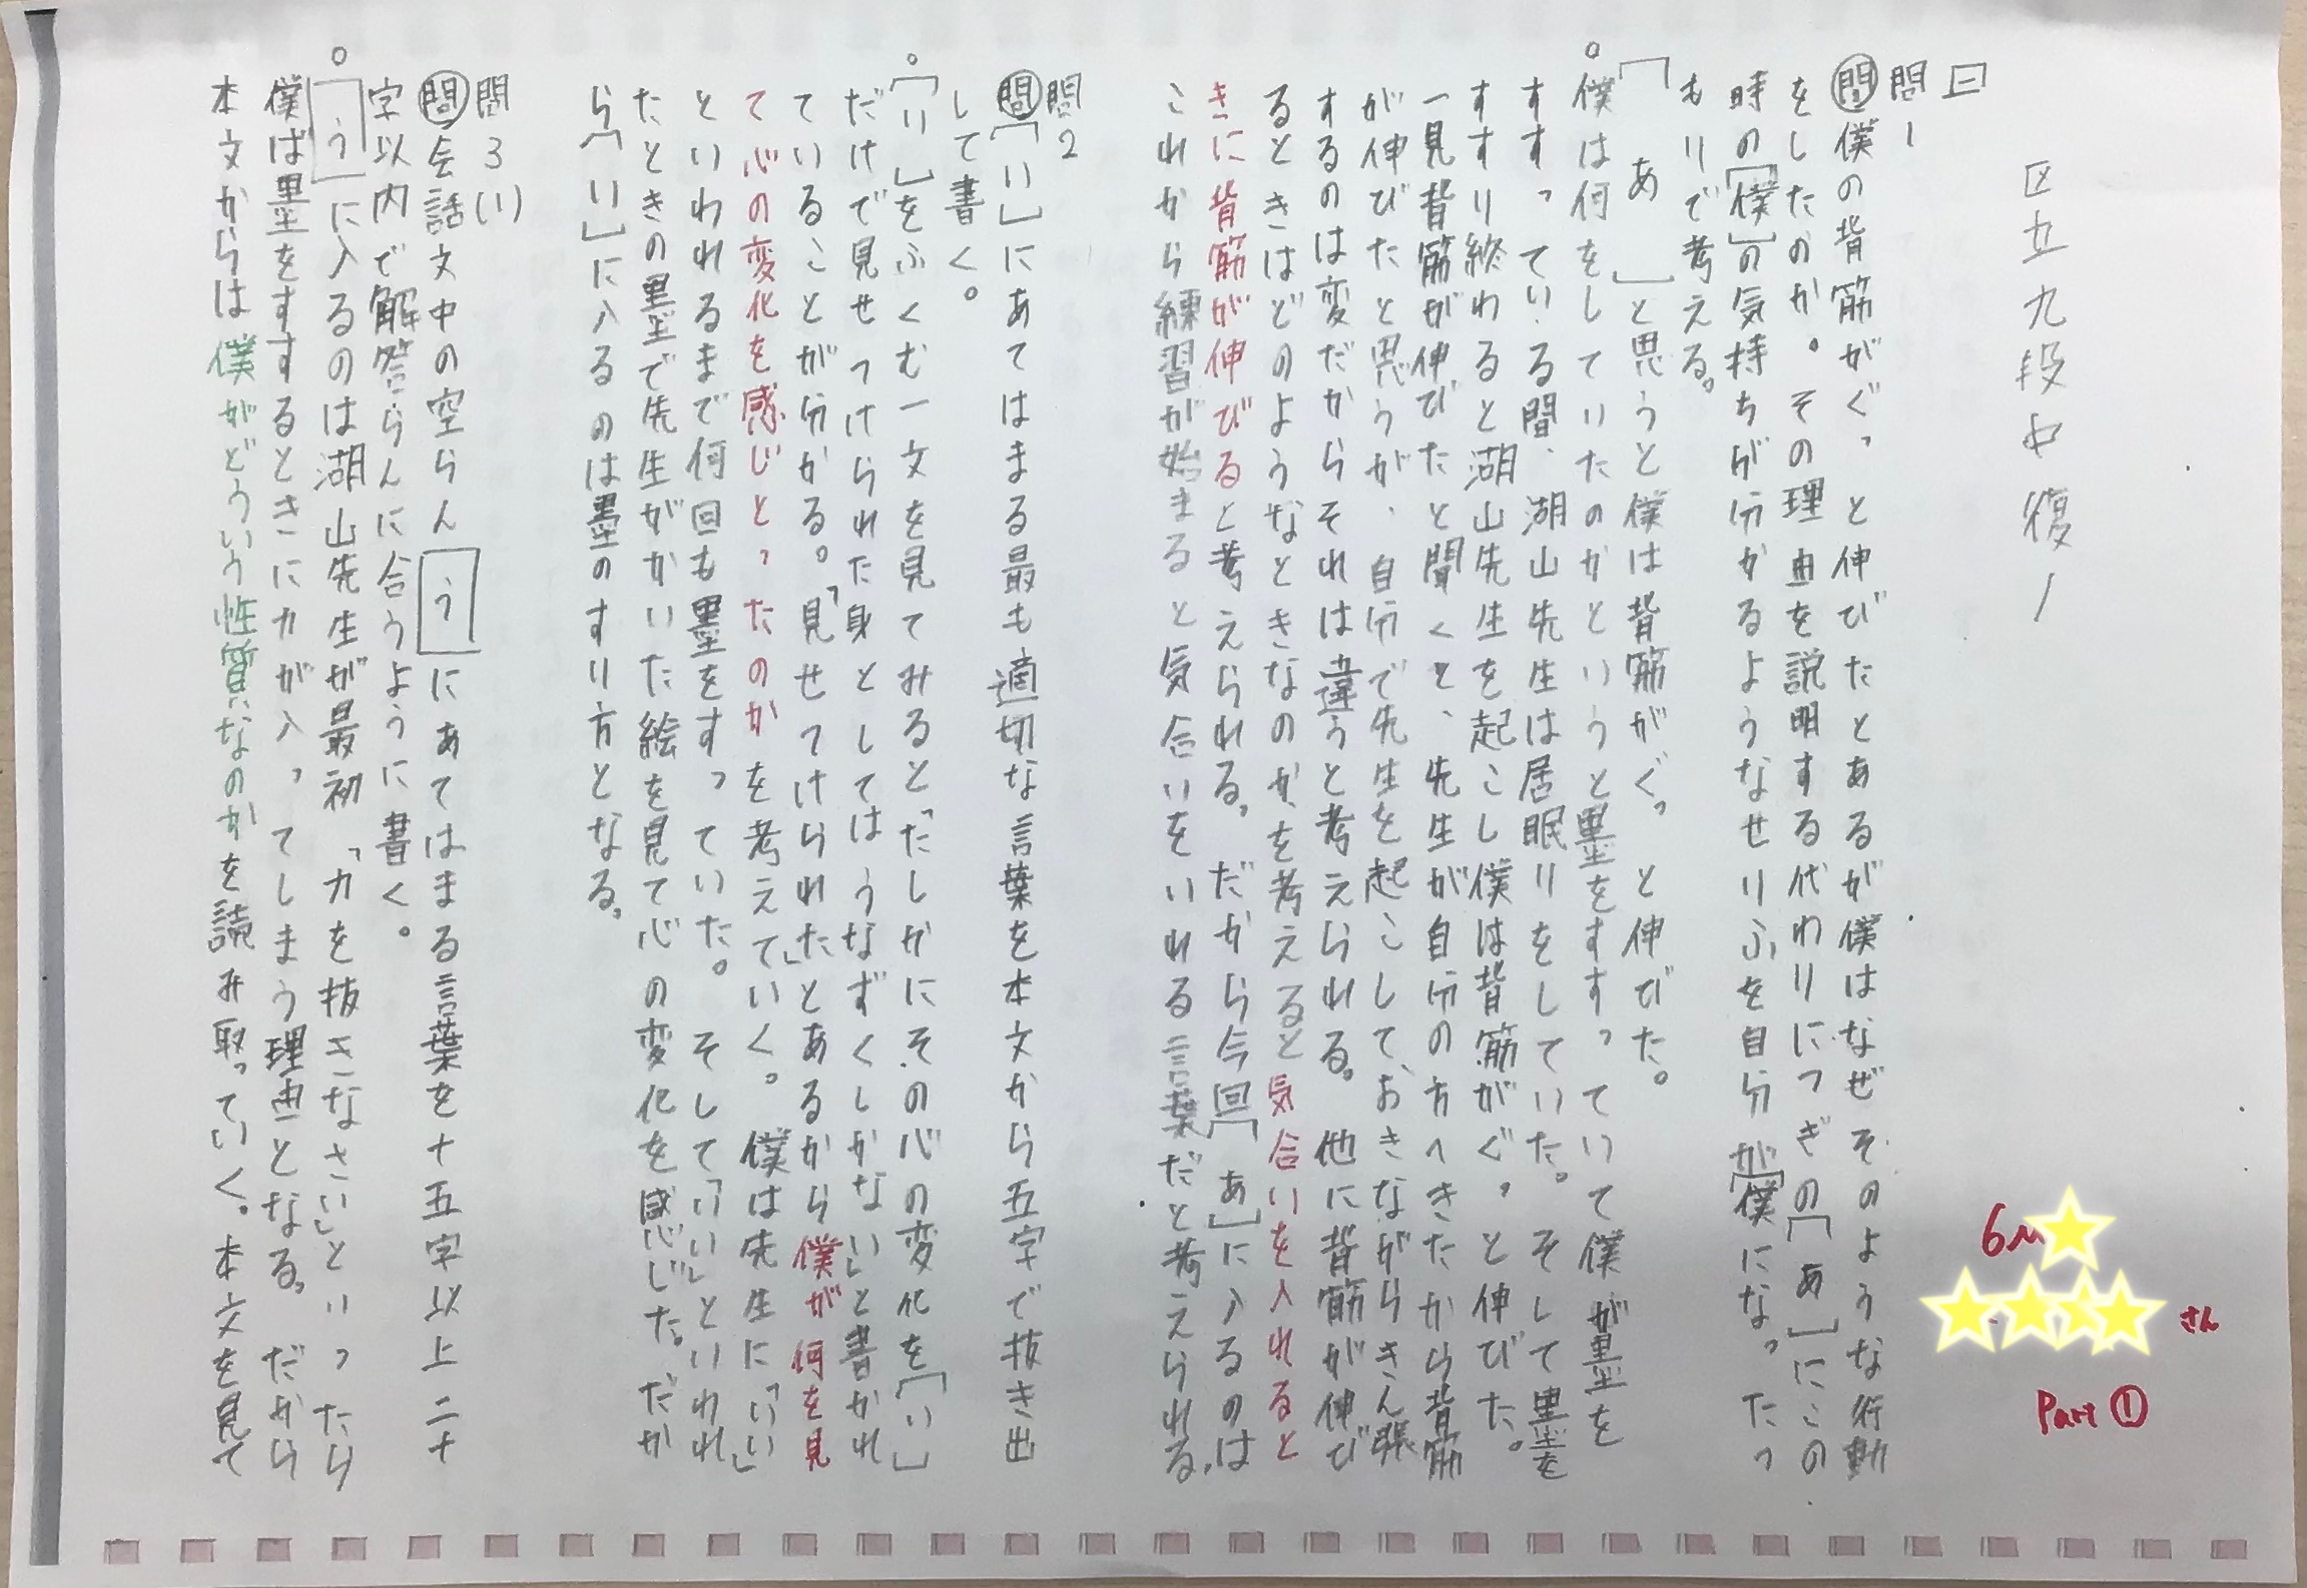 区立九段中復1
6M
さん
Part①
二
問1
問 僕の背筋がぐっと伸びたとあるが僕はなぜそのような行動
をしたのか。その理由を説明する代わりにつぎの「あ」にこの
時の「僕」の気持ちが分かるようなせりふを自分が「僕」になったつ
もりで考える。
「あ」と思うと僕は背筋がぐっと伸びた。
。僕は何をしていたのかというと墨をすすっていて僕が墨を
すすっている間、湖山先生は居眠りをしていた。そして墨を
すすり終わると湖山先生を起こし僕は背筋がぐっと伸びた。
一見背筋が伸びたと聞くと、先生が自分の方へきたから背筋
が伸びたと思うが、自分で先生を起こして、おきながらきん張
するのは変だからそれは違うと考えられる。他に背筋が伸び
るときはどのようなときなのか、を考えると気合いを入れると
きに背筋が伸びると考えられる。だから今回「あ」に入るのは
これから練習が始まると気合いをいれる言葉だと考えられる。
問2
問「い」にあてはまる最も適切な言葉を本文から五字で抜き出
して書く。
。「い」をふくむ一文を見てみると「たしかにその心の変化を「い」
だけで見せつけられた身としてはうなずくしかない」と書かれ
ていることが分かる。「見せつけられた」とあるから僕が何を見
て心の変化を感じとったのかを考えていく。僕は先生に「いい」
といわれるまで何回も墨をすっていた。そして「いい」といわれ
たときの墨で先生がかいた絵を見て心の変化を感じた。だか
ら「い」に入るのは墨のすり方となる。
問3(1)
問 会話文中の空らん う にあてはまる言葉を十五字以上二十
字以内で解答らんに合うように書く。
。「う」に入るのは湖山先生が最初「力を抜きなさい」といったら
僕は墨をすするときに力が入ってしまう理由となる。だから
本文からは僕がどういう性質なのかを読み取っていく。本文を見て